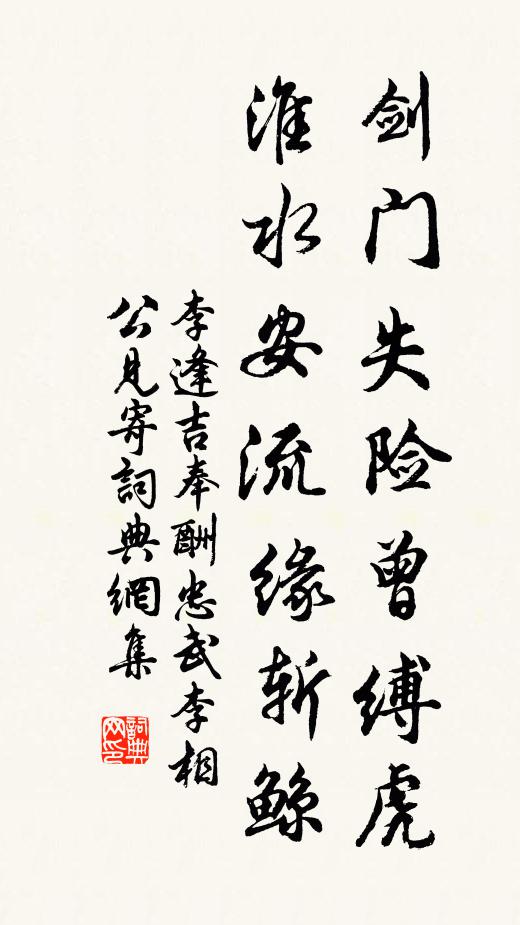 剑门失险曾缚虎
淮水安流缘斩鲸
李逢吉奉酬忠武李相
公见寄詞典網集
詞典网印